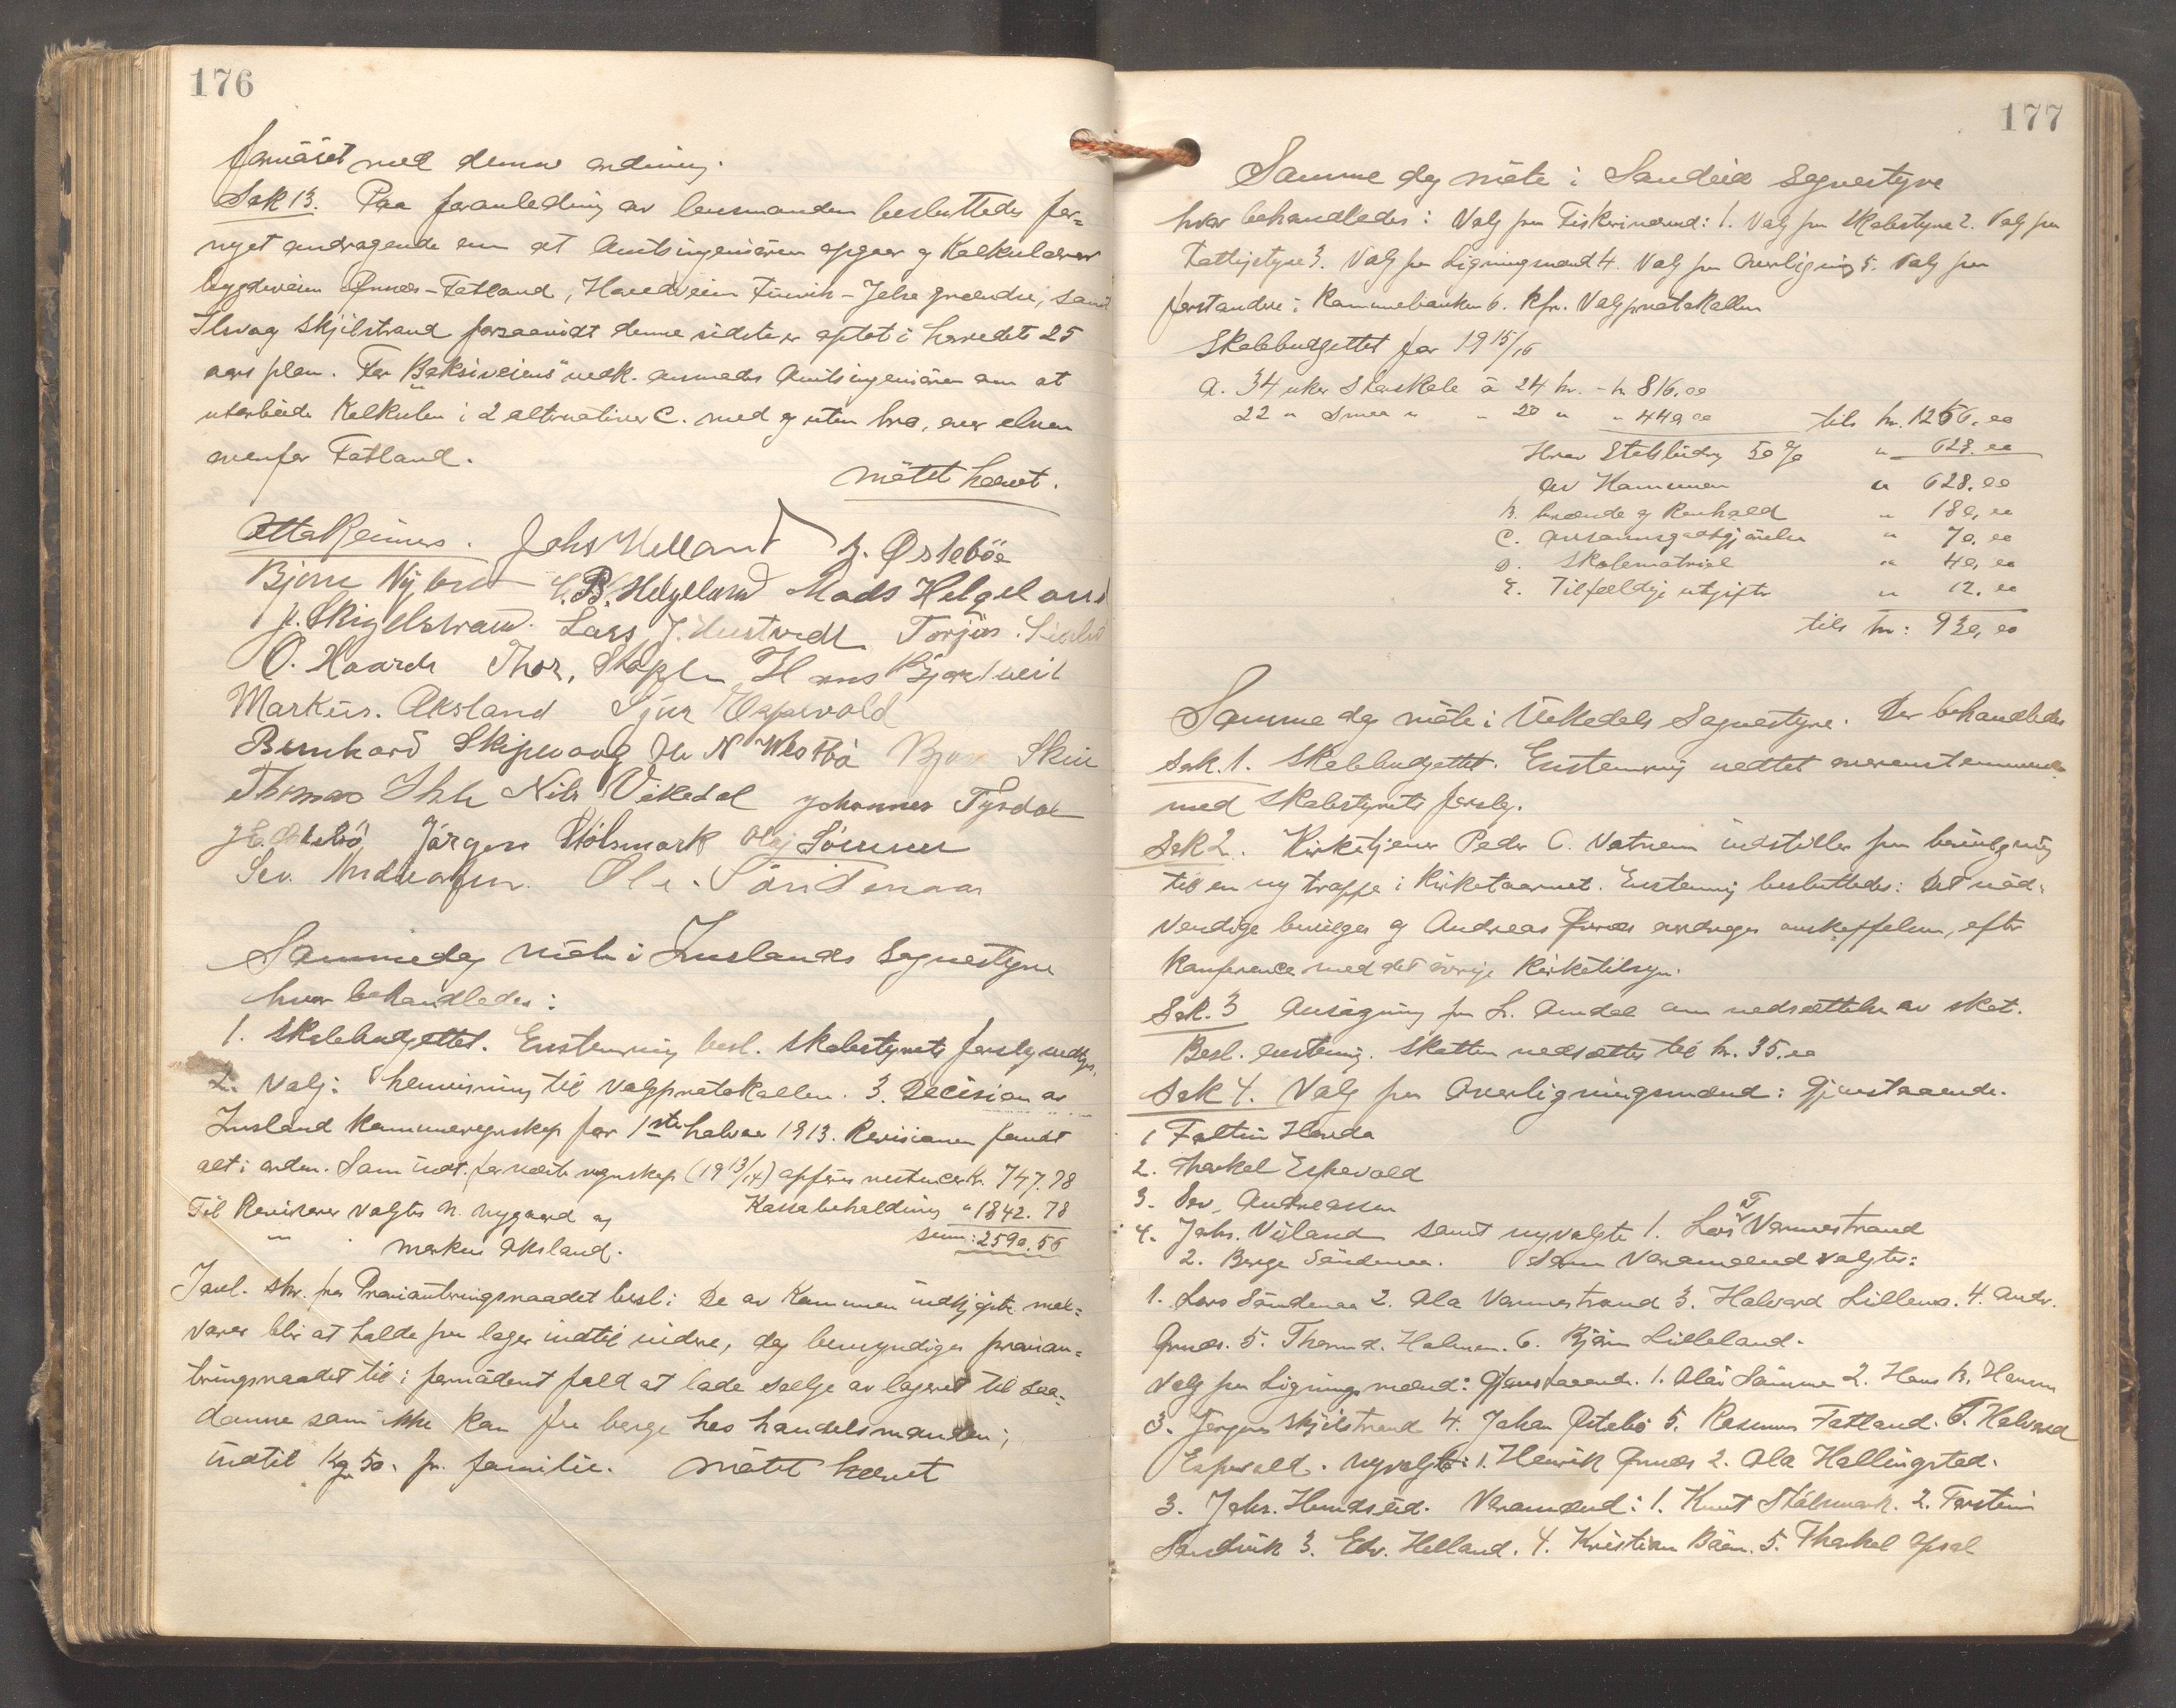 176
fornöiet med denne ordning.
Sak 13. Paa foranledning av lensmanden besluttedes for=
nyet andragende om at Amtsingeniøren opgaar og Kalkulerer
bygdeveien Ønnes-Fatland, Hovedveien Fiuvik-Jelse grændse, samt
Ilsvag Skjilstrand forsaavidt denne sidste er optat i herredets 25
aars plan. For Baksiveiens vedk. anmodes Amtsingeniören om at
utarbeide Kalkulen i 2 alternativer C. med og uten bro, over elven
ovenfor Fatland.
Mötet hævet.
Otto Reimers. Johs Helland J. Østebö
Bjarne Ny E. B. Helgeland Mads Helgeland
J. Skigelstrand. Lars J. Mustvedt Torjus
O. Haarde Thor. Hans
Markus. Aksland Sjur Espevold
Bernhard Skipevaag Ole N Westbö Skin
Thomas Nils Vikedal Johannes Tysdal
Jørgen Stölsmark Olaj Sömme
Sev. Andreassen. Ole. Söndenaa
Samme dag möte i Imslands Sognestyre
hvor behandledes:
1. Skolebudgettet. Enstemmig besl. Skolestyrets forslag vedtages.
2. Valg: henvisning til valgprotokollen. 3. Decision av
Imsland kommuneregnskap for 1ste halvaar 1913. Revisionen fandt
alt i orden. Som indt. for næste regnskap (1913/14) opföres restancer Kr. 747.78
Til Revisorer valgtes N. Nygaard og Kassebeholdning " 1842.78
" " Markus Aksland. sum: 2590.56
Javl. skr. fra Provianteringsraadet besl: De av Kommunen indkjöpte mel=
varer blir at holde paa lager indtil videre, dog bemyndiges provian=
teringsraadet til i fornödent fald at lade sælge av lageret til saa=
danne som ikke kan faa berge hos handelsmanden;
indtil Kg 50. pr. familie. Mötet hævet
177
Samme dag möte i Sandeid Sognestyre
hvor behandledes: Valg paa Fiskerinævnd: 1. Valg paa Skolestyre 2. Valg paa
Fattigstyre 3. Valg paa Ligningsmænd 4. Valg paa Overligning 5. Valg paa
forstandere i Kommunebanken 6. Kfr. Valgprotokollen
Skolebudgettet for 1915/16
A. 34 uker Storskole á 24 kr. - kr 816.00
22 " Smaa " " 20 " " 440.00 tils kr. 1256.00
Herav Statsbidrag 50 % " 628.00
Av Kommunen " 628.00
B. brænde og Renhold " 180.00
C. " 70.00
D. Skolematriel " 40.00
E. Tilfældige utgifter " 12.00
tils kr: 930.00
Samme dag möte i Vikedals Sognestyre. Der behandledes
Sak. 1. Skolebudgettet. Enstemmig vedtat overenstemmende
med Skolestyrets forslag.
Sak 2. Kirketjener Peder C. Vatnem indstiller paa bevilgning
til en ny trappe i Kirketaarnet. Enstemmig besluttedes: Det nöd=
vendige bevilges og Andreas Ønnes andrages anskaffelsen, efter
Konference med det övrige Kirketilsyn.
Sak. 3 Ansögning fra L. Amdal om nedsættelse av skat.
Besl. enstemmig. Skatten nedsættes til kr. 35.00
Sak 4. Valg paa Overligningsmænd: Gjenstaaende.
1 Faltin Hovda
2. Thorkel Espevold
3. Sev. Andreassen
4. Johs. Viland samt nyvalgte 1. Lars T. Vannestrand
2. Berge Söndenaa. Som Varamænd valgtes:
1. Lars Söndenaa 2. Ola Vannestrand 3. Halvard Lillenes. 4. Andr.
Ønnes. 5. Thormd. Holmen. 6. Björn Lilleland.
Valg paa Ligningsmænd: Gjenstaaende. 1. Olai Sömme 2. Hans B. Hansen
3. Jörgen Skjilstrand 4. Johan Östebö 5. Rasmus Fatland. 6. Halvard
Espevold. Nyvalgte: 1. Henrik Ønnes 2. Ola Hallingstad.
3. Johs. Hundseid. Varamænd: 1. Knut Stölsmark. 2. Torstein
Sandvik 3. Edv. Helland. 4. Kristian Böen. 5. Thorkel Opsal